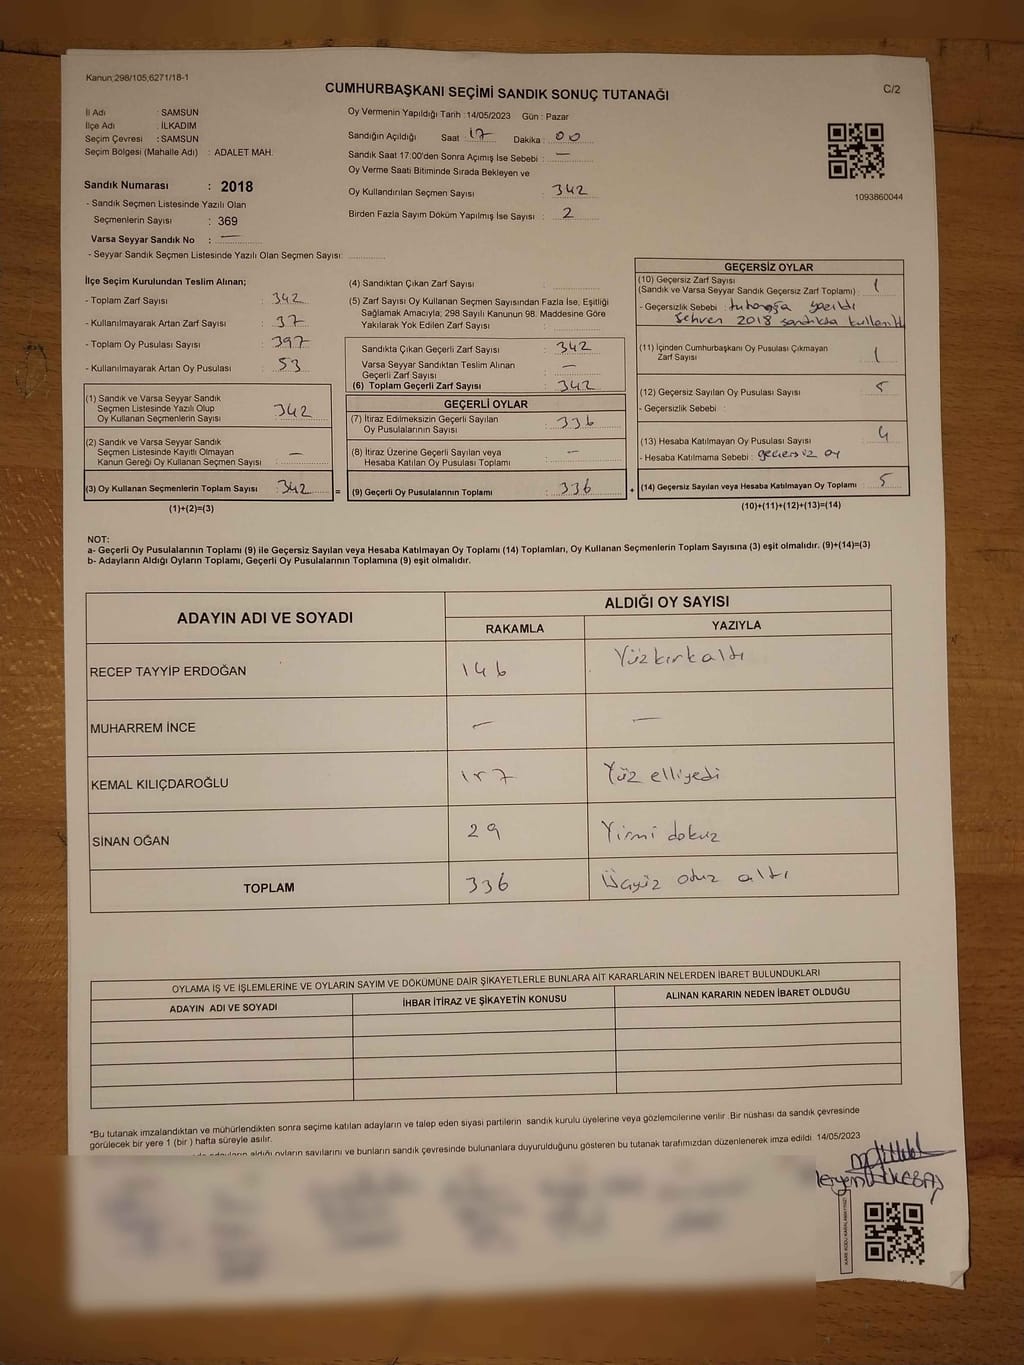 Kanun;298/105;6271/18-1
CUMHURBAŞKANI SEÇİMİ SANDIK SONUÇ TUTANAĞI
C/2
İl Adı : SAMSUN
İlçe Adı : İLKADIM
Seçim Çevresi : SAMSUN
Seçim Bölgesi (Mahalle Adı) : ADALET MAH.
Oy Vermenin Yapıldığı Tarih :14/05/2023 Gün : Pazar
Sandığın Açıldığı Saat : 17 Dakika : 00
Sandık Saat 17:00'den Sonra Açımış İse Sebebi : —
Oy Verme Saati Bitiminde Sırada Bekleyen ve
Oy Kullandırılan Seçmen Sayısı : 342
Birden Fazla Sayım Döküm Yapılmış İse Sayısı : 2
1093860044
Sandık Numarası : 2018
- Sandık Seçmen Listesinde Yazılı Olan
Seçmenlerin Sayısı : 369
Varsa Seyyar Sandık No : —
- Seyyar Sandık Seçmen Listesinde Yazılı Olan Seçmen Sayısı:
İlçe Seçim Kurulundan Teslim Alınan;
- Toplam Zarf Sayısı : 342
- Kullanılmayarak Artan Zarf Sayısı : 37
- Toplam Oy Pusulası Sayısı : 397
- Kullanılmayarak Artan Oy Pusulası : 53
(1) Sandık ve Varsa Seyyar Sandık
Seçmen Listesinde Yazılı Olup
Oy Kullanan Seçmenlerin Sayısı : 342
(2) Sandık ve Varsa Seyyar Sandık
Seçmen Listesinde Kayıtlı Olmayan
Kanun Gereği Oy Kullanan Seçmen Sayısı : —
(3) Oy Kullanan Seçmenlerin Toplam Sayısı : 342
(1)+(2)=(3)
(4) Sandıktan Çıkan Zarf Sayısı :
(5) Zarf Sayısı Oy Kullanan Seçmen Sayısından Fazla İse, Eşitliği
Sağlamak Amacıyla; 298 Sayılı Kanunun 98. Maddesine Göre
Yakılarak Yok Edilen Zarf Sayısı :
Sandıkta Çıkan Geçerli Zarf Sayısı : 342
Varsa Seyyar Sandıktan Teslim Alınan
Geçerli Zarf Sayısı : —
(6) Toplam Geçerli Zarf Sayısı : 342
GEÇERLİ OYLAR
(7) İtiraz Edilmeksizin Geçerli Sayılan
Oy Pusulalarının Sayısı : 336
(8) İtiraz Üzerine Geçerli Sayılan veya
Hesaba Katılan Oy Pusulası Toplamı : —
= (9) Geçerli Oy Pusulalarının Toplamı : 336 +
GEÇERSİZ OYLAR
(10) Geçersiz Zarf Sayısı
(Sandık ve Varsa Seyyar Sandık Geçersiz Zarf Toplamı) : 1
- Geçersizlik Sebebi : tutanağa yazıldı
Sehven 2018 sandıkta
(11) İçinden Cumhurbaşkanı Oy Pusulası Çıkmayan
Zarf Sayısı : 1
(12) Geçersiz Sayılan Oy Pusulası Sayısı : 5
- Geçersizlik Sebebi :
(13) Hesaba Katılmayan Oy Pusulası Sayısı : 4
- Hesaba Katılmama Sebebi : geçersiz oy
(14) Geçersiz Sayılan veya Hesaba Katılmayan Oy Toplamı : 5
(10)+(11)+(12)+(13)=(14)
NOT:
a- Geçerli Oy Pusulalarının Toplamı (9) ile Geçersiz Sayılan veya Hesaba Katılmayan Oy Toplamı (14) Toplamları, Oy Kullanan Seçmenlerin Toplam Sayısına (3) eşit olmalıdır. (9)+(14)=(3)
b- Adayların Aldığı Oyların Toplamı, Geçerli Oy Pusulalarının Toplamına (9) eşit olmalıdır.
ADAYIN ADI VE SOYADI
ALDIĞI OY SAYISI
RAKAMLA YAZIYLA
RECEP TAYYİP ERDOĞAN 146 Yüzkırkaltı
MUHARREM İNCE — —
KEMAL KILIÇDAROĞLU 157 Yüz elliyedi
SİNAN OĞAN 29 Yirmi dokuz
TOPLAM 336 Üçyüz otuz altı
OYLAMA İŞ VE İŞLEMLERİNE VE OYLARIN SAYIM VE DÖKÜMÜNE DAİR ŞİKAYETLERLE BUNLARA AİT KARARLARIN NELERDEN İBARET BULUNDUKLARI
ADAYIN ADI VE SOYADI İHBAR İTİRAZ VE ŞİKAYETİN KONUSU ALINAN KARARIN NEDEN İBARET OLDUĞU
*Bu tutanak imzalandıktan ve mühürlendikten sonra seçime katılan adayların ve talep eden siyasi partilerin sandık kurulu üyelerine veya gözlemcilerine verilir .Bir nüshası da sandık çevresinde
görülecek bir yere 1 (bir ) hafta süreyle asılır.
adayların aldığı oyların sayılarını ve bunların sandık çevresinde bulunanlara duyurulduğunu gösteren bu tutanak tarafımızdan düzenlenerek imza edildi 14/05/2023